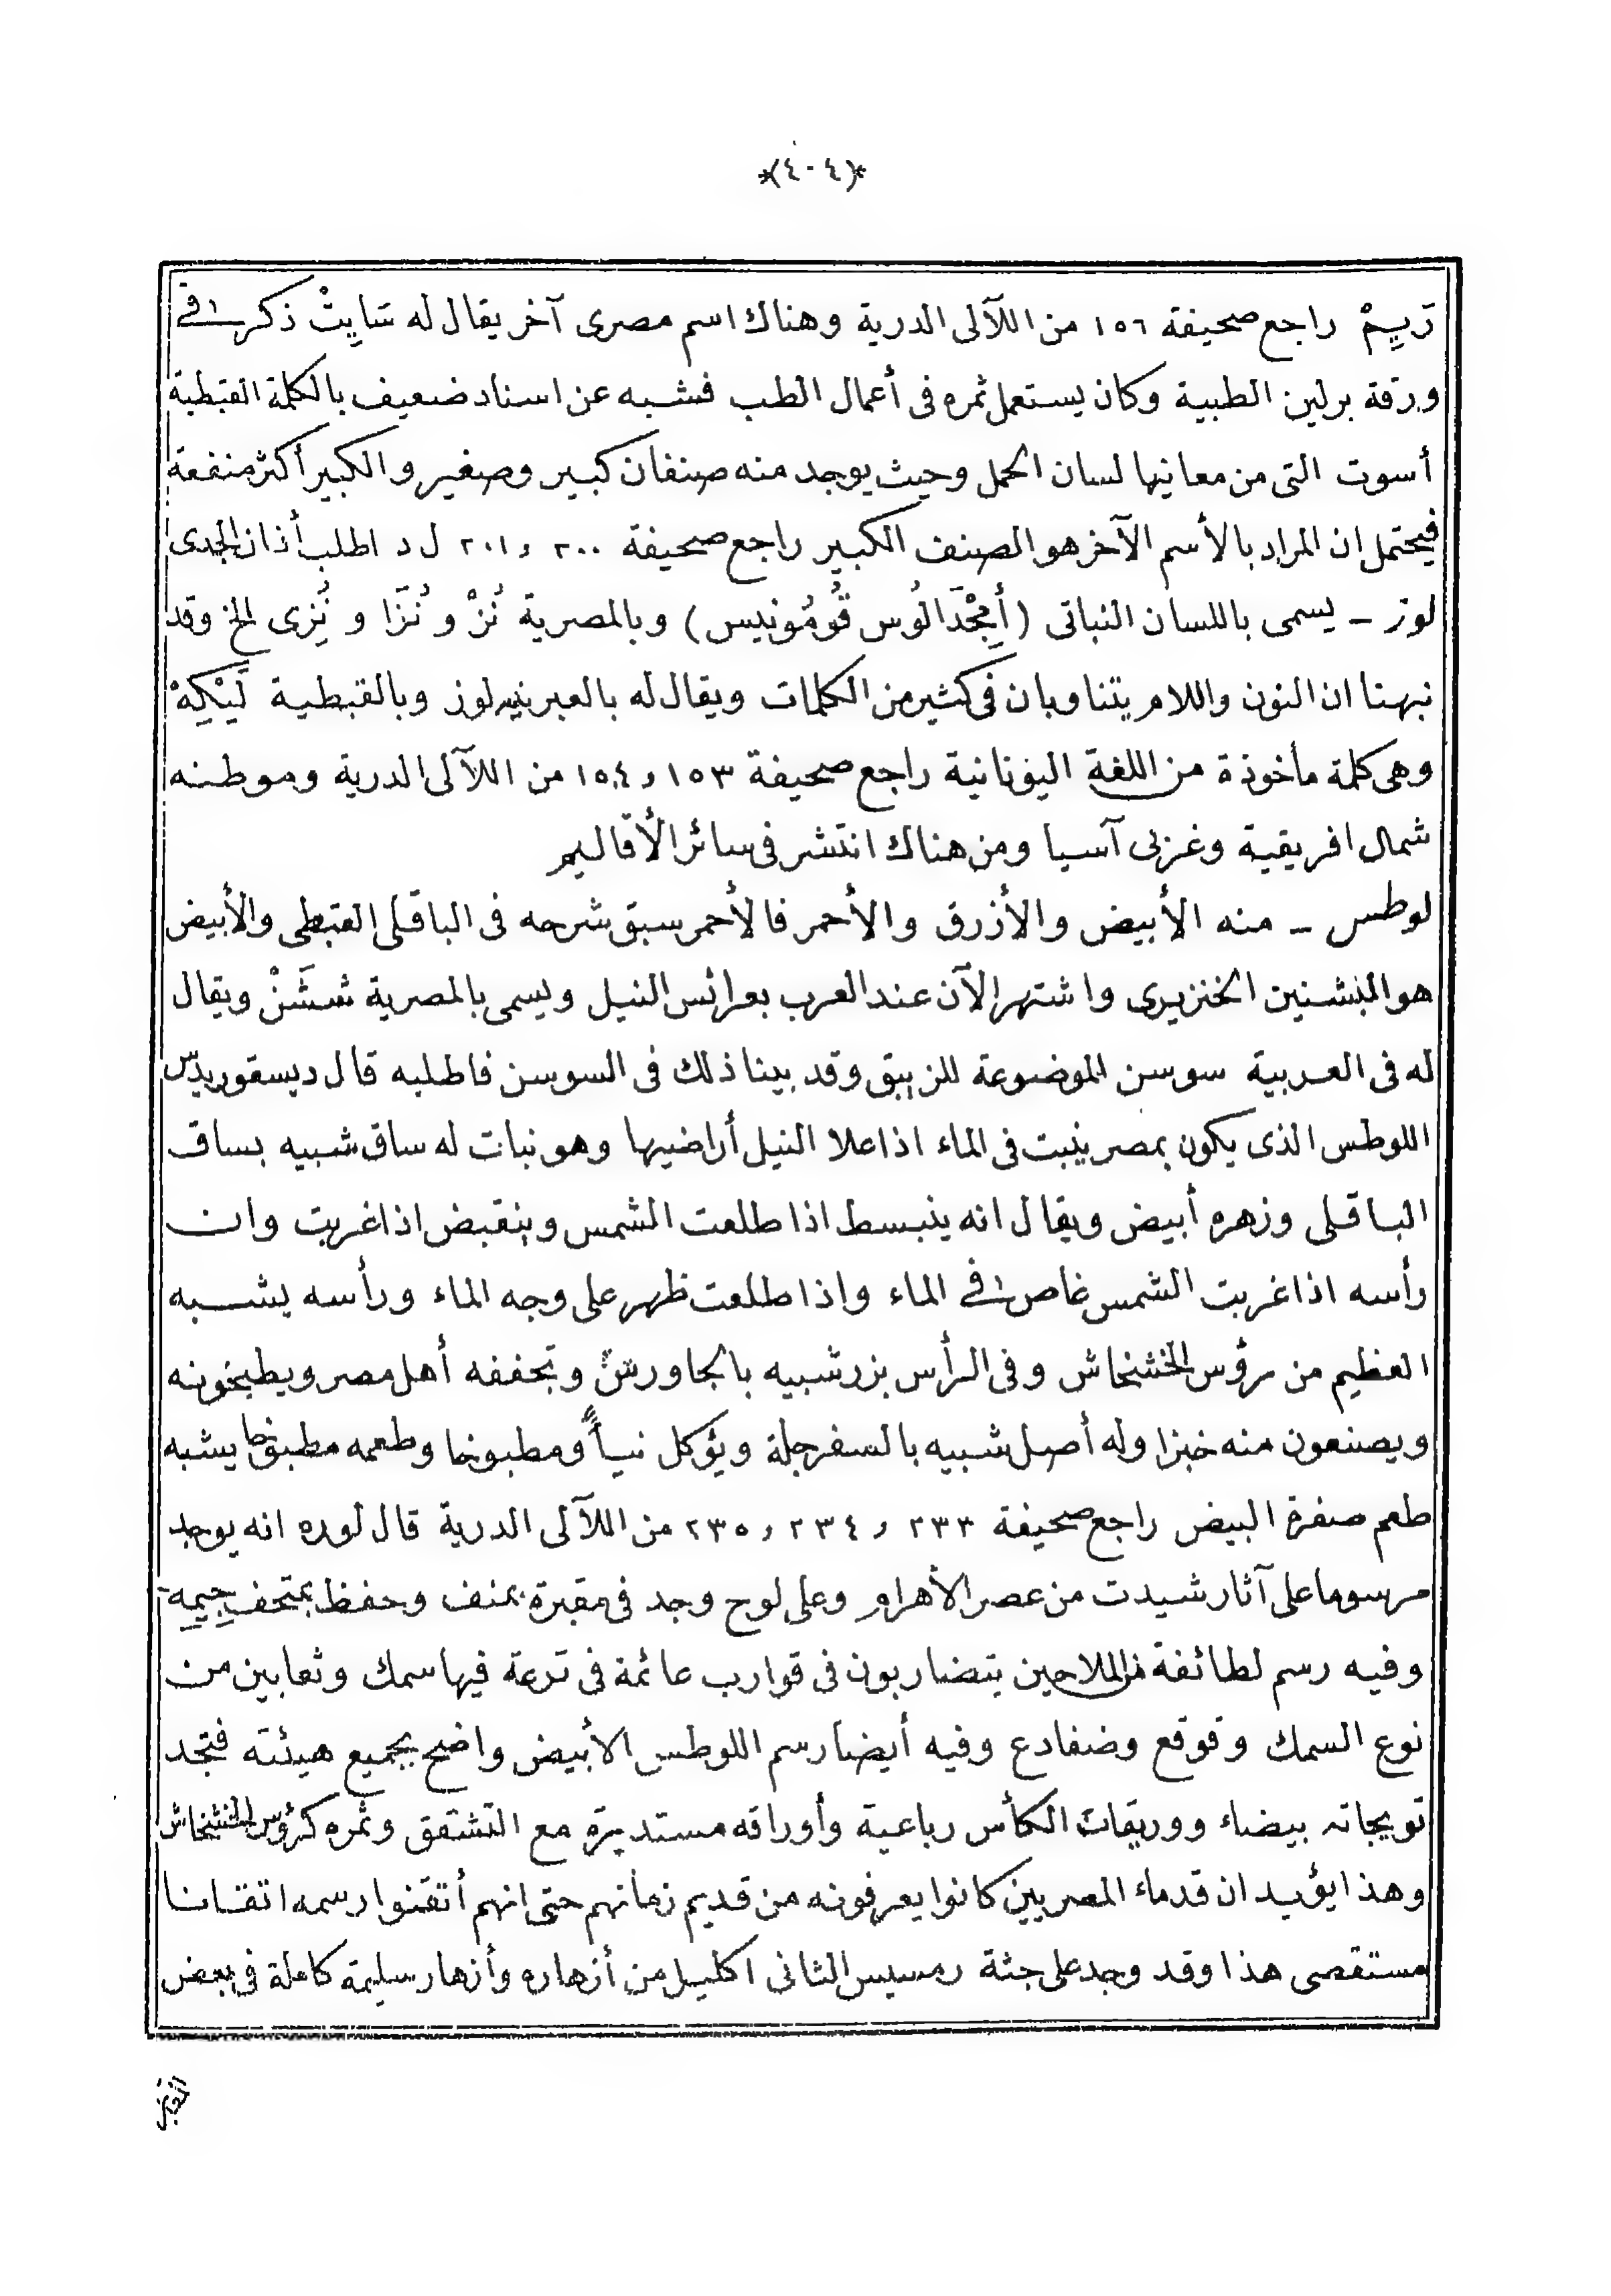 *(٤٠٤)*
رَيِمْ راجع صحيفة ١٥٦ من اللآلى الدرية وهناك اسم مصرى آخر يقال له سَايِتْ ذكر فى
ورقة برلين الطبية وكان يستعمل ثمره فى أعمال الطب فشبه عن اسناد ضعيف بالكلمة القبطية
أسوت التى من معانيها لسان الحمل وحيث يوجد منه صنفان كبير وصغير والكبير أكثر منفعة
فيحتمل ان المراد بالأسم الآخر هو الصنف الكبير راجع صحيفة ٢٠٠ و ٢٠١ ل د اطلب أذان الجدى
لوز ـ يسمى باللسان النباتى (أَمِجْدَالُوس قُومُونيس) وبالمصرية نُزْ و نُزَا و نُزِى الخ وقد
نبهنا ان النون واللام يتناوبان فى كثير من الكلمات ويقال له بالعبرنيه لوز وبالقبطية لَيْكِهْ
وهى كلمة مأخوذة من اللغة اليونانية راجع صحيفة ١٥٣ و ١٥٤ من اللآلى الدرية وموطنه
شمال افريقية وغربى آسيا ومن هناك انتشر فى سائر الأقاليم
لوطس ـ منه الأبيض والأزرق والأحمر فالأحمر سبق شرحه فى الباقلى القبطى والأبيض
هو البشنين الخنزيرى واشتهر الآن عند العرب بعرائس النيل ويسمى بالمصرية شَشَنْ ويقال
له فى العربية سوسن الموضوعة للزبيق وقد بينا ذلك فى السوسن فاطلبه قال ديسقوريدس
اللوطس الذى يكون بمصر ينبت فى الماء اذا علا النيل أراضيها وهو نبات له ساق شبيه بساق
الباقلى وزهره أبيض ويقال انه ينبسط اذا طلعت الشمس وينقبض اذا غربت وان
رأسه اذا غربت الشمس غاص فى الماء واذا طلعت ظهر على وجه الماء ورأسه يشبه
العظيم من رؤس الخشخاش وفى الرأس بزر شبيه بالجاورش وتجففه أهل مصر ويطبخونه
ويصنعون منه خبزا وله أصل شبيه بالسفرجلة ويؤكل نيأ ومطبوخا وطعمه مطبوخا يشبه
طعم صفرة البيض راجع صحيفة ٢٣٣ و ٢٣٤ و ٢٣٥ من اللآلى الدرية قال لوره انه يوجد
مرسوما على آثار شيدت من عصر الأهرام وعلى لوح وجد فى مقبرة بمنف وحفظ بمتحف جِيمِه
وفيه رسم لطائفة من الملاحين يتضاربون فى قوارب عائمة فى ترعة فيها سمك وثعابين من
نوع السمك وقوقع وضفادع وفيه أيضا رسم اللوطس الأبيض واضح بجميع هيئته فتجد
تويجاته بيضاء ووريقات الكأس رباعية وأوراقه مستديرة مع التشقق وثمره كرؤس الخشخاش
وهذا يؤيد ان قدماء المصريين كانوا يعرفونه من قديم زمانهم حتى انهم أتقنوا رسمه اتقانا
مستقصى هذا وقد وجد على جثة رمسيس الثانى اكليل من أزهاره وأزهار سليمة كاملة فى بعض